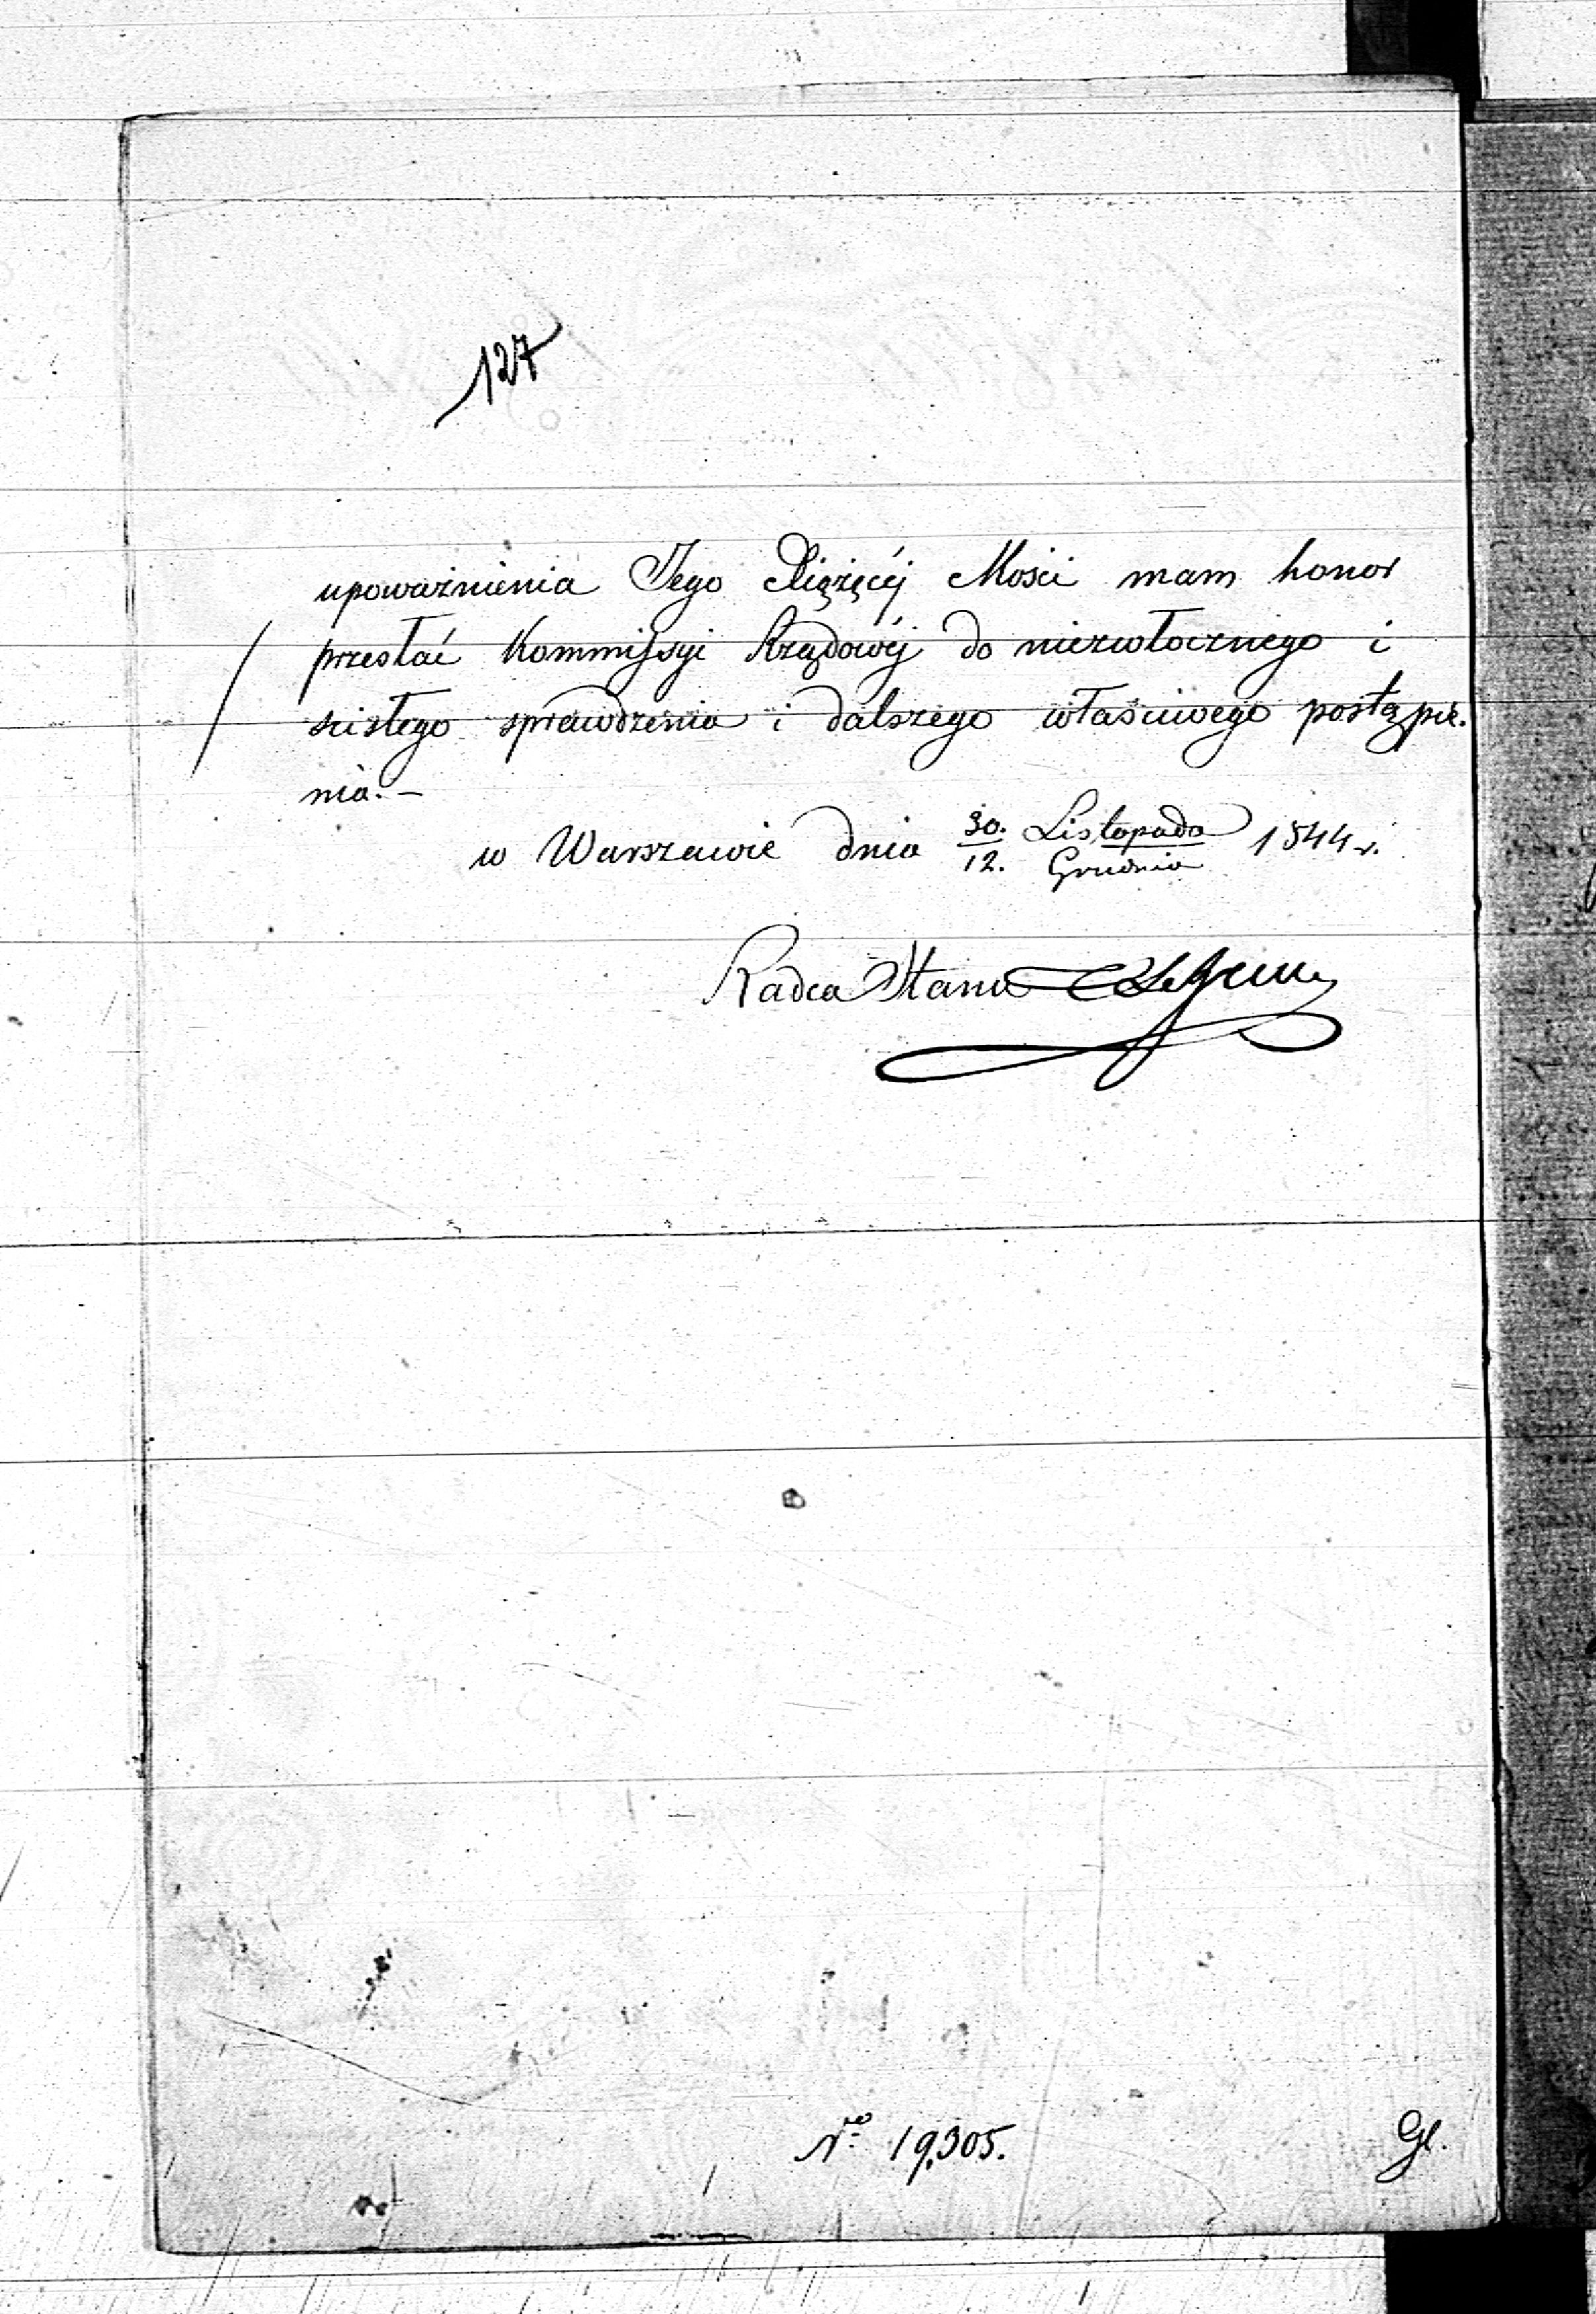 127
upoważnienia Jego Xiążęcéj Mości mam honor
przesłać Kommissyi Rządowéj do niezwłocznego i
scisłego sprawdzenia i dalszego właściwego postąpie-
nia. –
w Warszawie dnia 30./12. Listopada/Grudnia 1844 r.
Radca Stanu
No 19,305.
Gl.